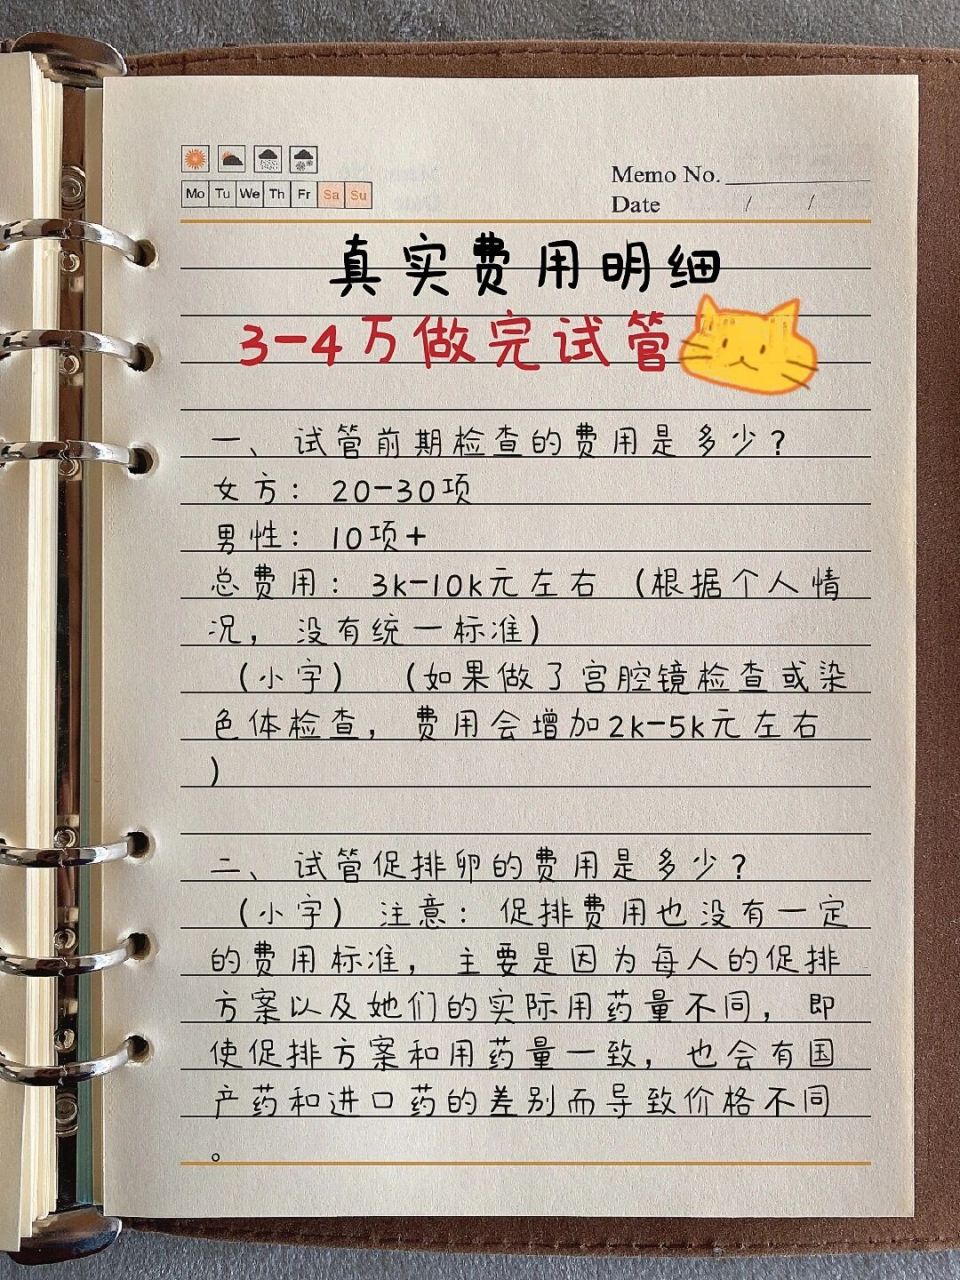 Mo Tu We Th Fr Sa Su
Memo No.
Date / /
真实费用明细
3-4万做完试管
一、试管前期检查的费用是多少？
女方：20-30项
男性：10项+
总费用：3k-10k元左右（根据个人情
况，没有统一标准）
（小字）（如果做了宫腔镜检查或染
色体检查，费用会增加2k-5k元左右
）
二、试管促排卵的费用是多少？
（小字）注意：促排费用也没有一定
的费用标准，主要是因为每人的促排
方案以及她们的实际用药量不同，即
使促排方案和用药量一致，也会有国
产药和进口药的差别而导致价格不同
。